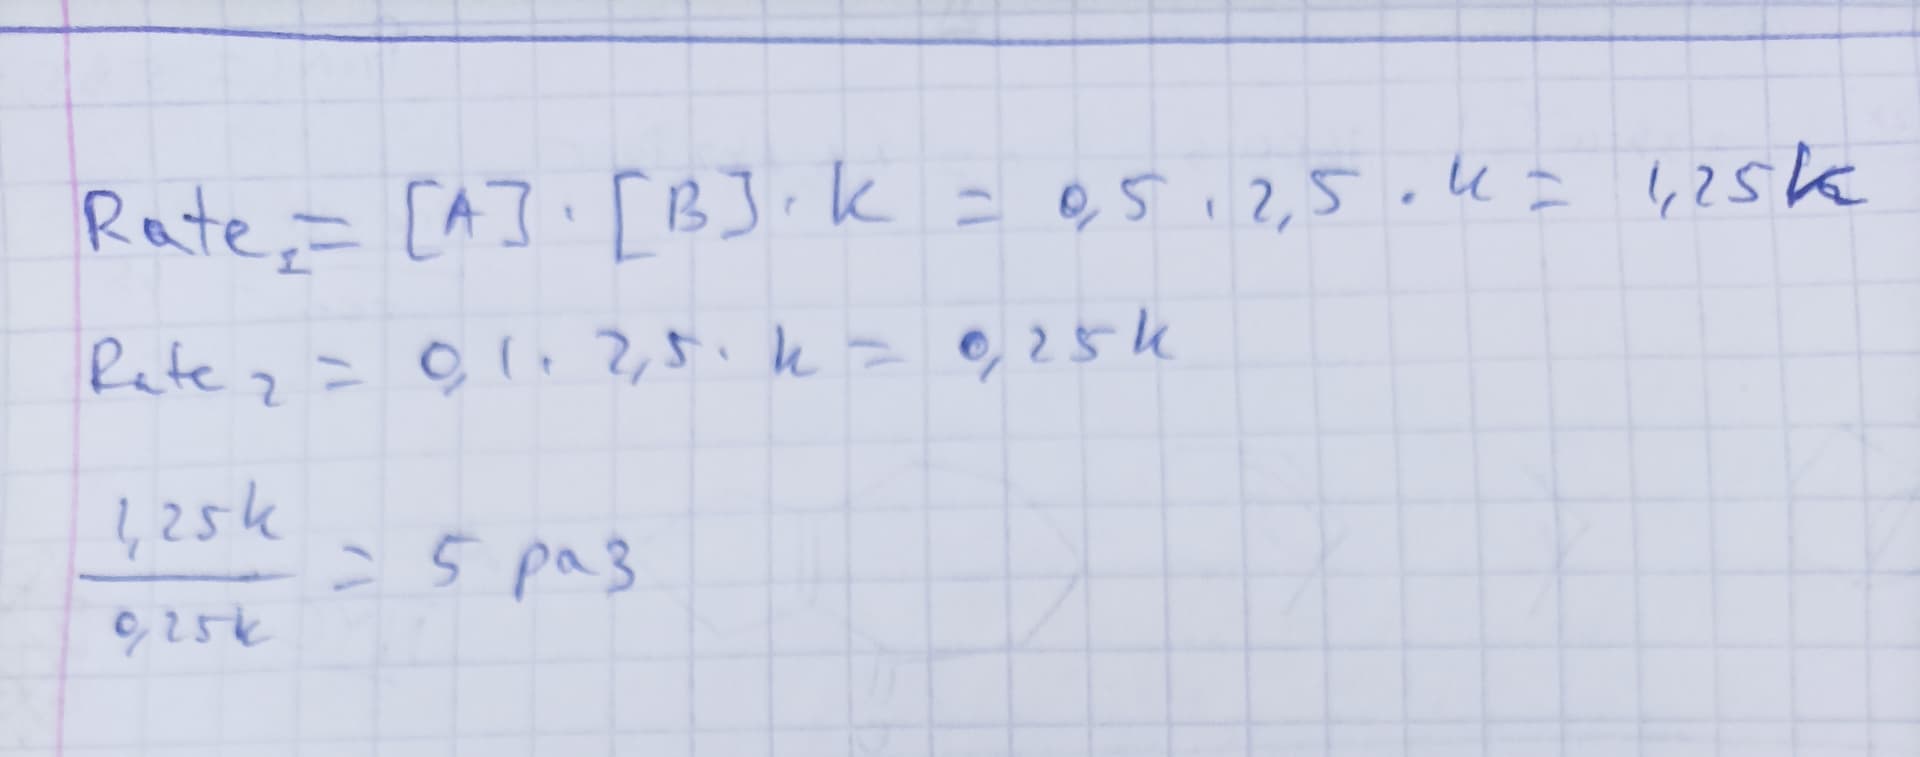 Rate₁ = [A] · [B] · k = 0,5 · 2,5 · k = 1,25k
Rate₂ = 0,1 · 2,5 · k = 0,25k
1,25k / 0,25k = 5 раз